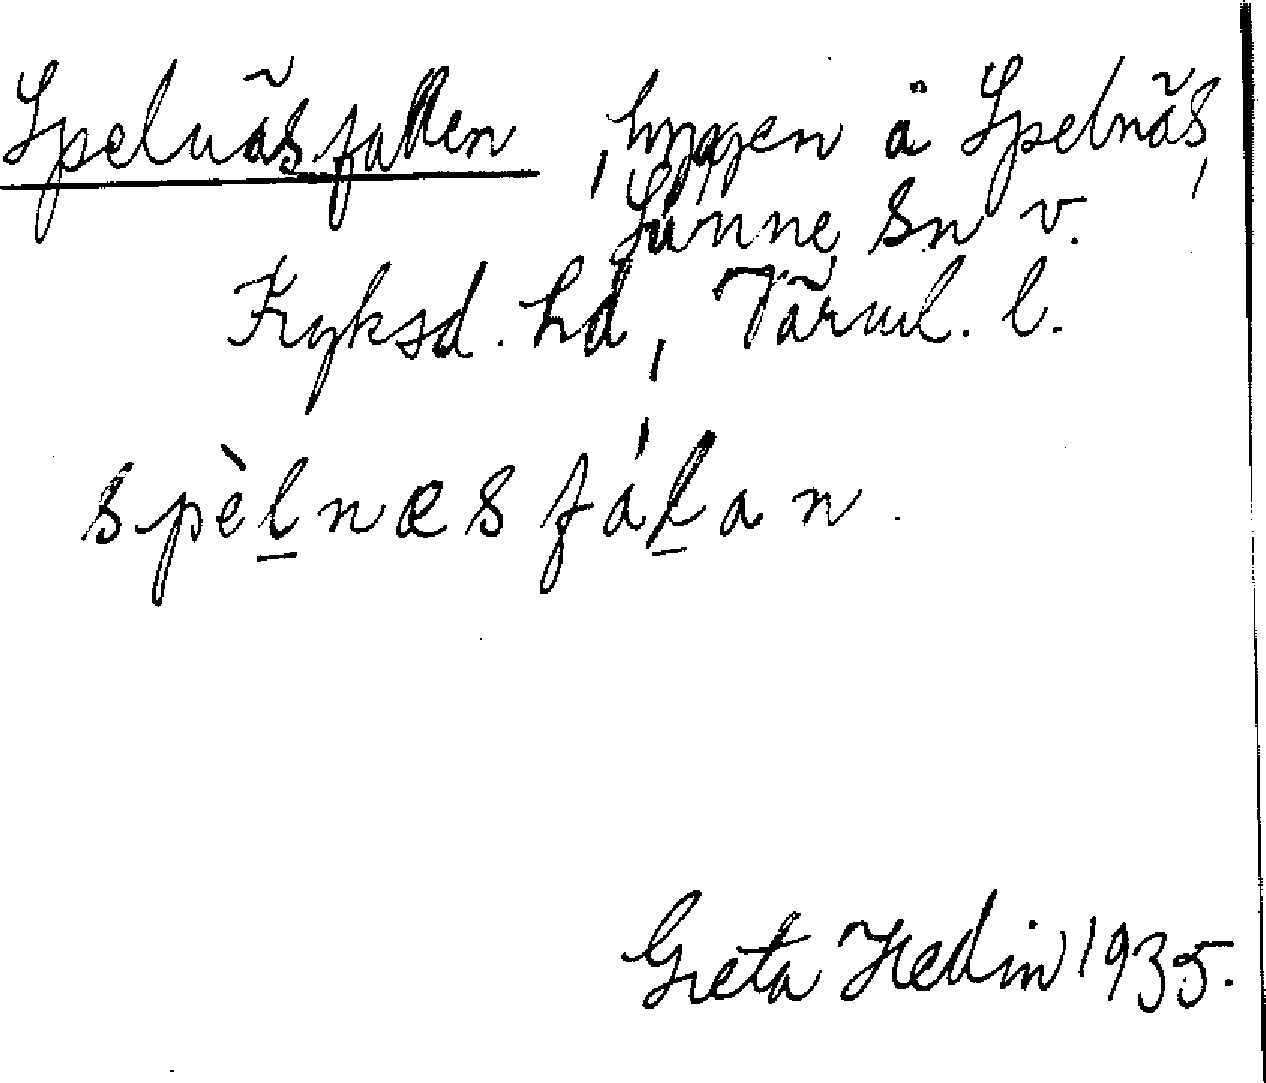 Spelnäsfallen, byggen å Spelnäs,
Sunne sn v.
Fryksd. hd, Värml. l.
spèl̲næsfál̲an.
Greta Hedin 1935.